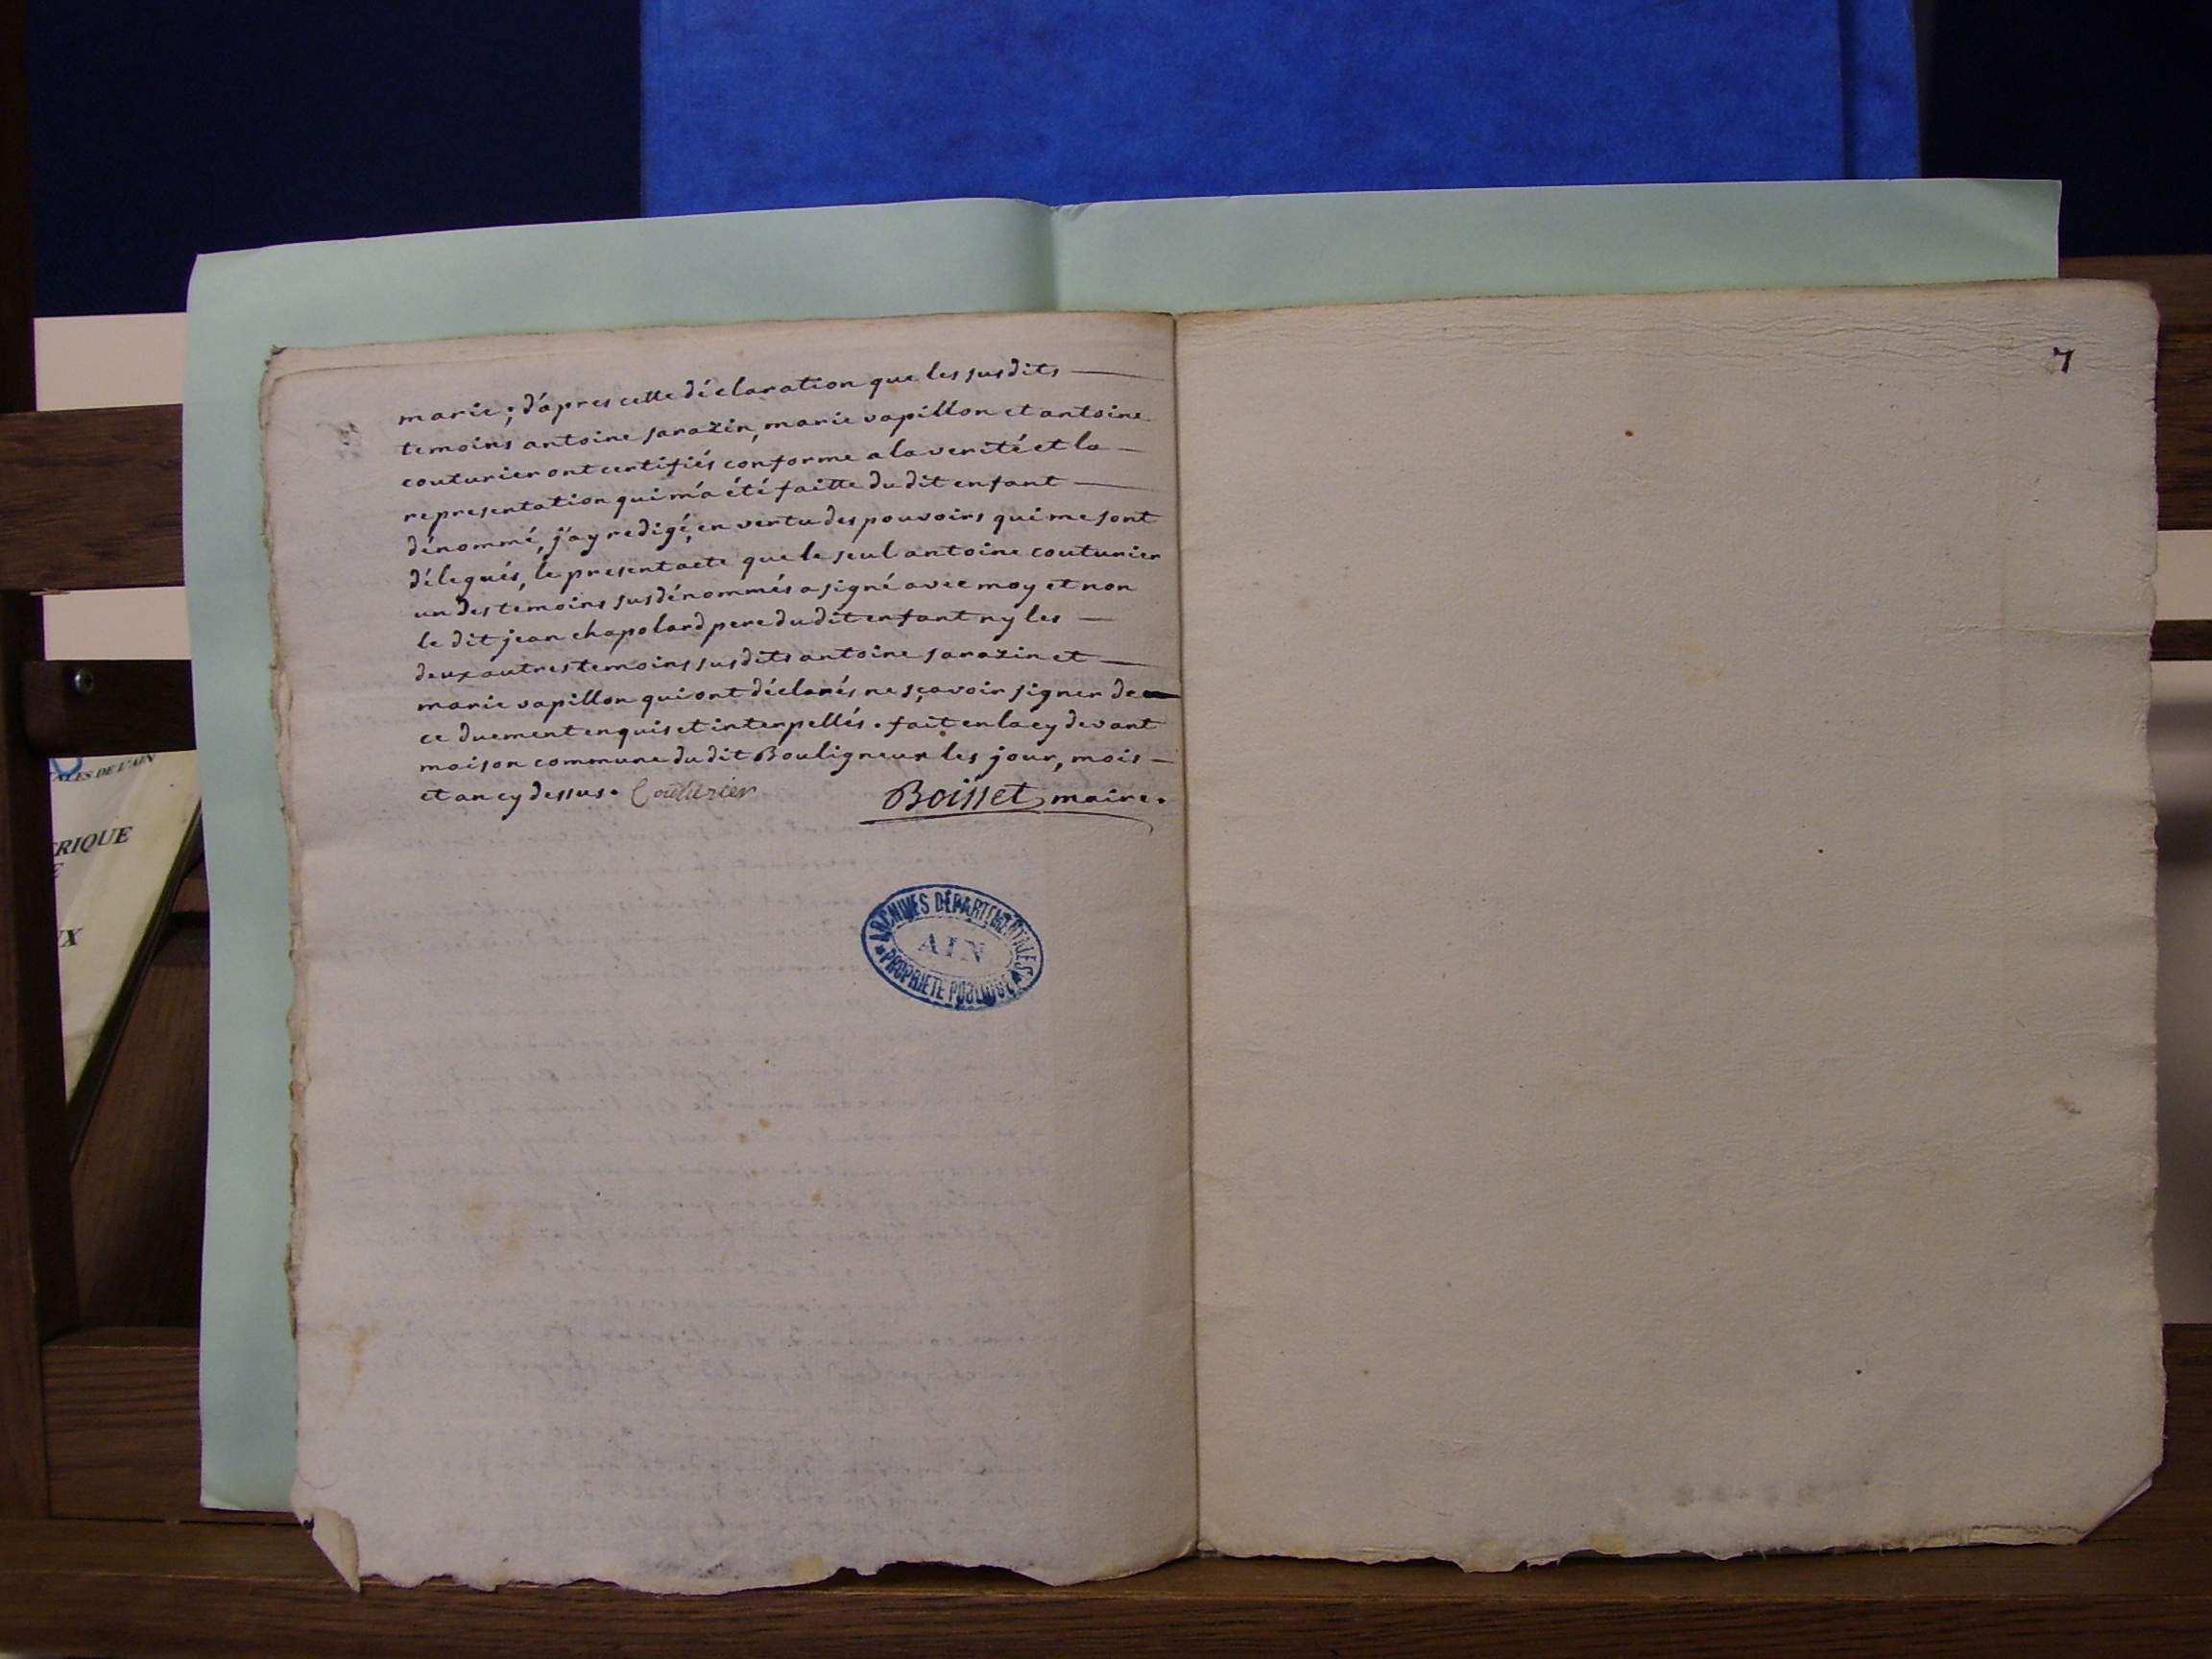 marie; d'apres cette déclaration que les susdits —
temoins antoine sarazin, marie vapillon et antoine
couturier ont certifiés conforme a la verité et la —
representation qui m'a été faitte du dit enfant —
dénommé, j'ay redigé, en vertu des pouvoirs qui me sont
délegués, le present acte que le seul antoine couturier
un des temoins susdénommés a signé avec moy et non
le dit jean chapolard pere du dit enfant ny les —
deux autres temoins susdits antoine sarazin et —
marie vapillon qui ont déclarés ne sçavoir signer de —
ce duement enquis et interpellés. fait en la cy devant
maison commune du dit Bouligneux les jour, mois —
et an cy dessus. Couturier Boisset maire.
ARCHIVES DÉPARTEMENTALES
AIN
PROPRIETE PUBLIQUE
7
ALES DE L'AIN
RIQUE
E
X